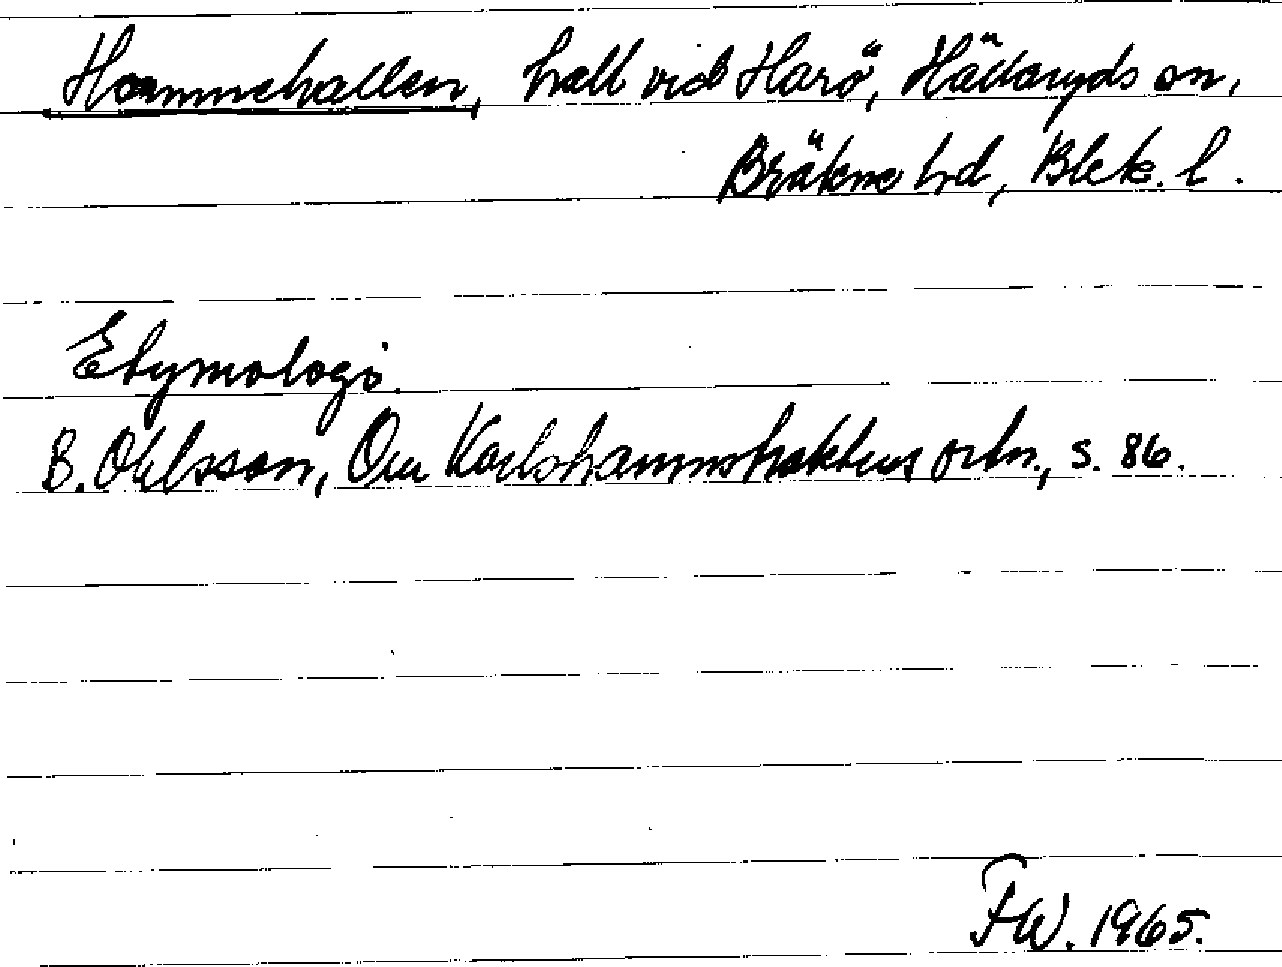 Hammehallen, hall vid Harö, Hällaryds sn,
Bräkne hd, Blek. l.
Etymologi.
B. Ohlsson, Om Karlshamnstraktens ortn., s. 86.
FW. 1965.